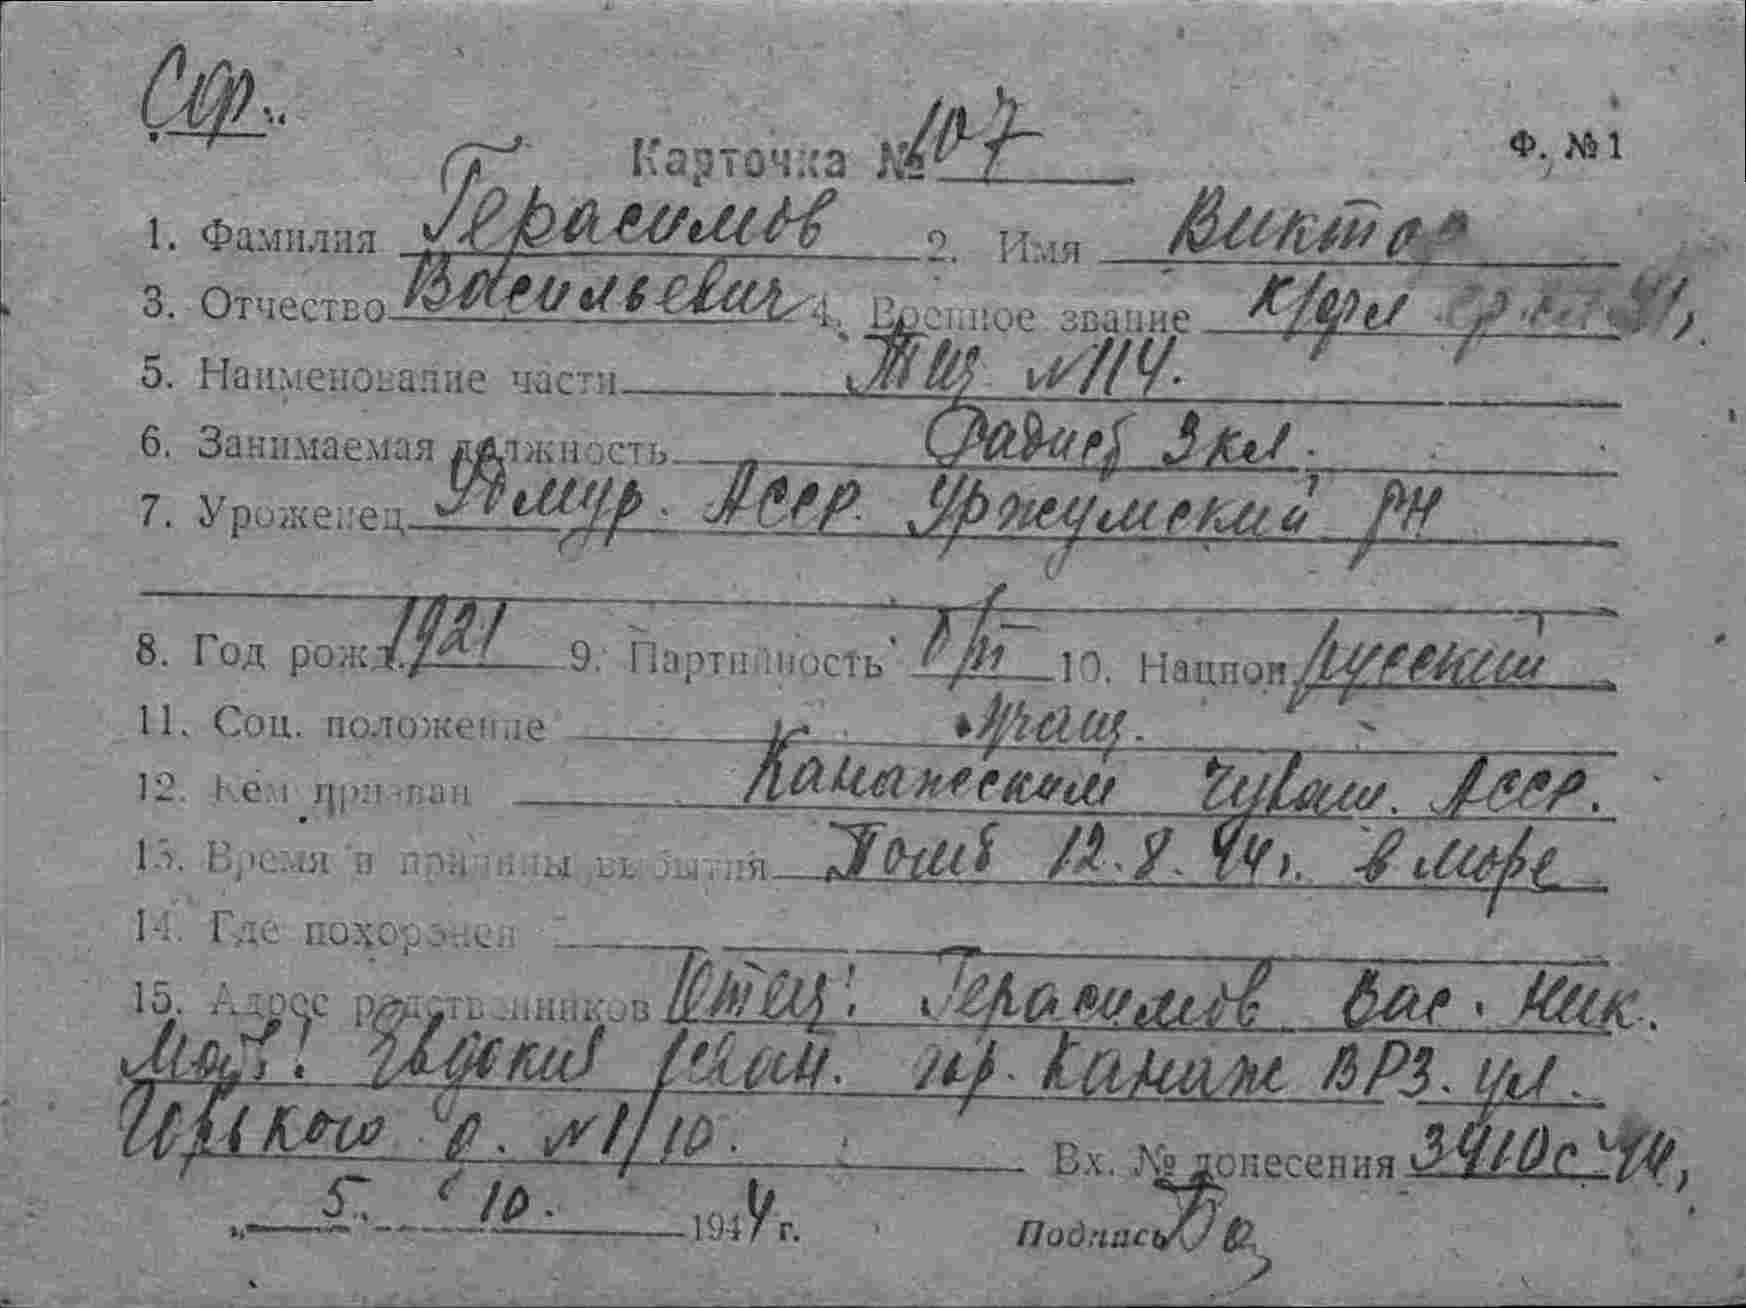 Сф.
Карточка № 107
Ф. № 1
1. Фамилия Герасимов 2. Имя Виктор
3. Отчество Васильевич 4. Военное звание к/фл
5. Наименование части Тщ №114.
6. Занимаемая должность Радист 3 кл.
7. Уроженец Удмур. АССР. Уржумский РН
8. Год рожд. 1921 9. Партийность б/п 10. Национ. русский
11. Соц. положение учащ.
12. Кем призван Канашским Чуваш. АССР.
13. Время и причины выбытия Погиб 12.8.44г. в море
14. Где похоронен
15. Адрес родственников Отец: Герасимов Вас. Ник.
Мать: Евдокия гор. Канаш ВРЗ. ул.
Горького д. №1/10. Вх. № донесения 3410с 44г,
„ 5. “ 10. 1944 г. Подпись